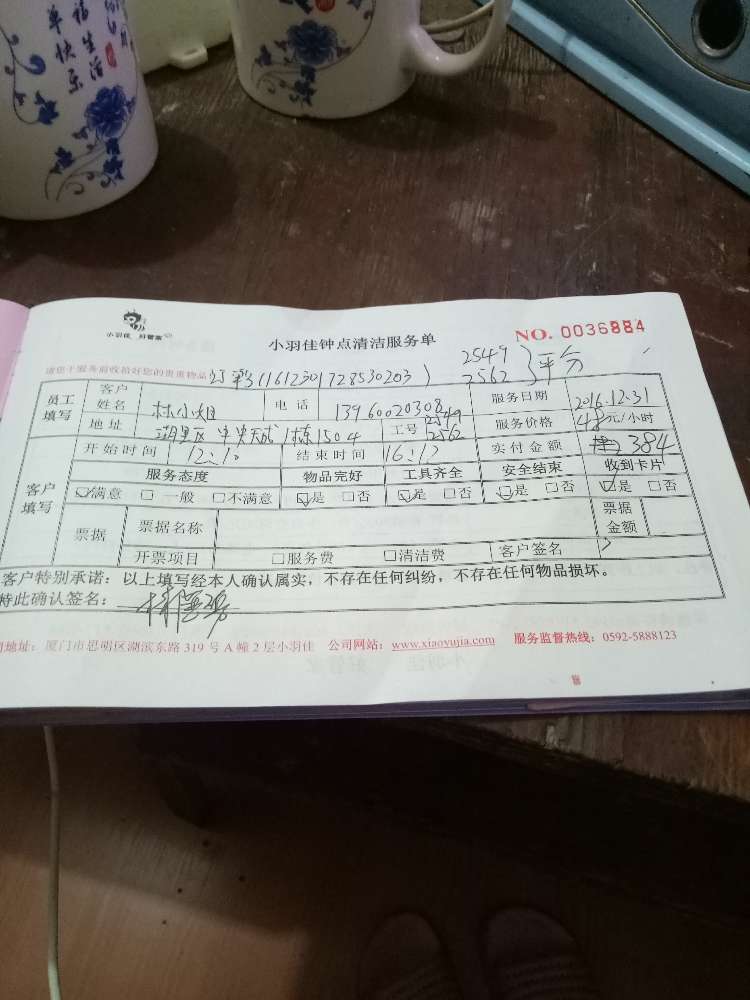 福生活
单快乐
小羽佳 好管家
小羽佳钟点清洁服务单
NO. 0036884
请您于服务前收拾好您的贵重物品
(1612301728530203)
2549
2562
平分
员工填写
客户姓名
林小姐
电话
13960020308
服务日期
2016.12.31
地址
湖里区 中央天成 1栋1504
工号
2549
2562
服务价格
48元/小时
客户填写
开始时间
12:10
结束时间
16:12
实付金额
384
服务态度 物品完好 工具齐全 安全结束 收到卡片
☑满意 □一般 □不满意 ☑是 □否 ☑是 □否 ☑是 □否 ☑是 □否
票据
票据名称
票据金额
开票项目
□服务费
□清洁费
客户签名
客户特别承诺：以上填写经本人确认属实，不存在任何纠纷，不存在任何物品损坏。
特此确认签名：
司地址：厦门市思明区湖滨东路 319 号 A 幢 2 层小羽佳 公司网站：www.xiaoyujia.com 服务监督热线：0592-5888123